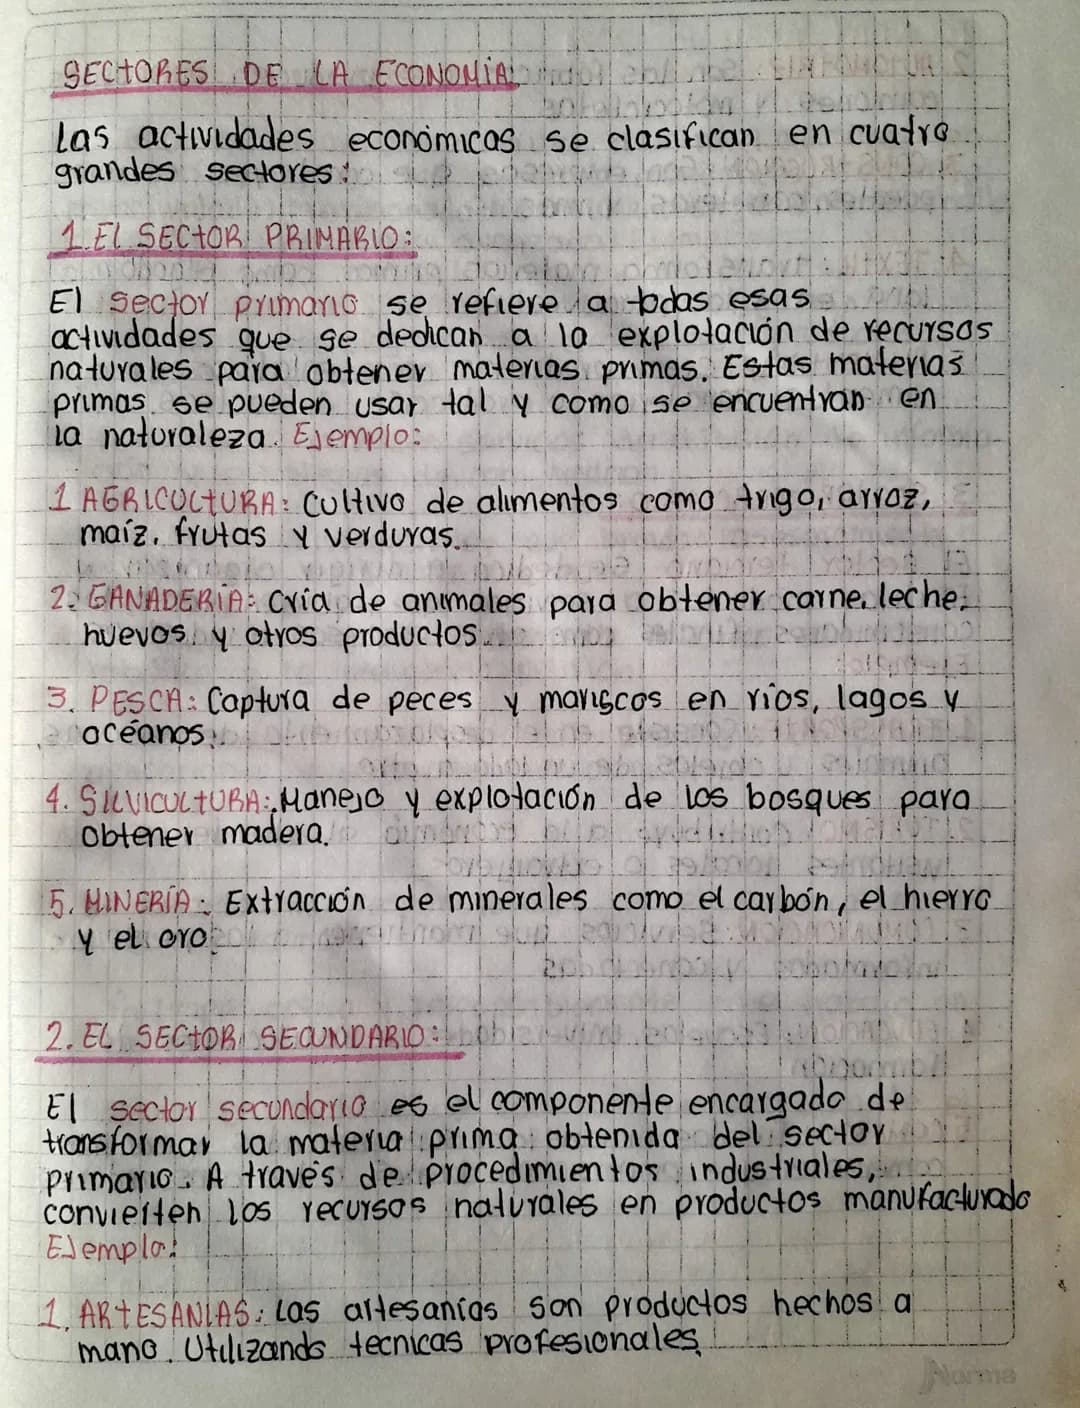 SECTORES DE LA ECONOMÍA:
Las actividades económicas se clasifican en cuatro
grandes sectores:
1. El SECTOR PRIMARIO:
El sector primario se refiere a todas esas
actividades que se dedican a la explotación de recursos
naturales para obtener materias primas. Estas materias
primas se pueden usar tal y como se encuentran en
la naturaleza. Ejemplo:
1 AGRICULTURA: Cultivo de alimentos como trigo, arroz,
maíz, frutas y verduras.
2. GANADERÍA: Cría de animales para obtener carne, leche,
huevos y otros productos.
3. PESCA: Captura de peces y mariscos en ríos, lagos y
océanos.
4. SILVICULTURA: Manejo y explotación de los bosques para
obtener madera.
5. MINERÍA: Extracción de minerales como el carbón, el hierro
y el oro.
2. EL SECTOR SECUNDARIO:
El sector secundario es el componente encargado de
transformar la materia prima obtenida del sector
primario. A través de procedimientos industriales,
convierten los recursos naturales en productos manufacturado
Ejemplo:
1. ARTESANIAS: Las artesanías son productos hechos a
mano. Utilizando tecnicas profesionales.
Norma